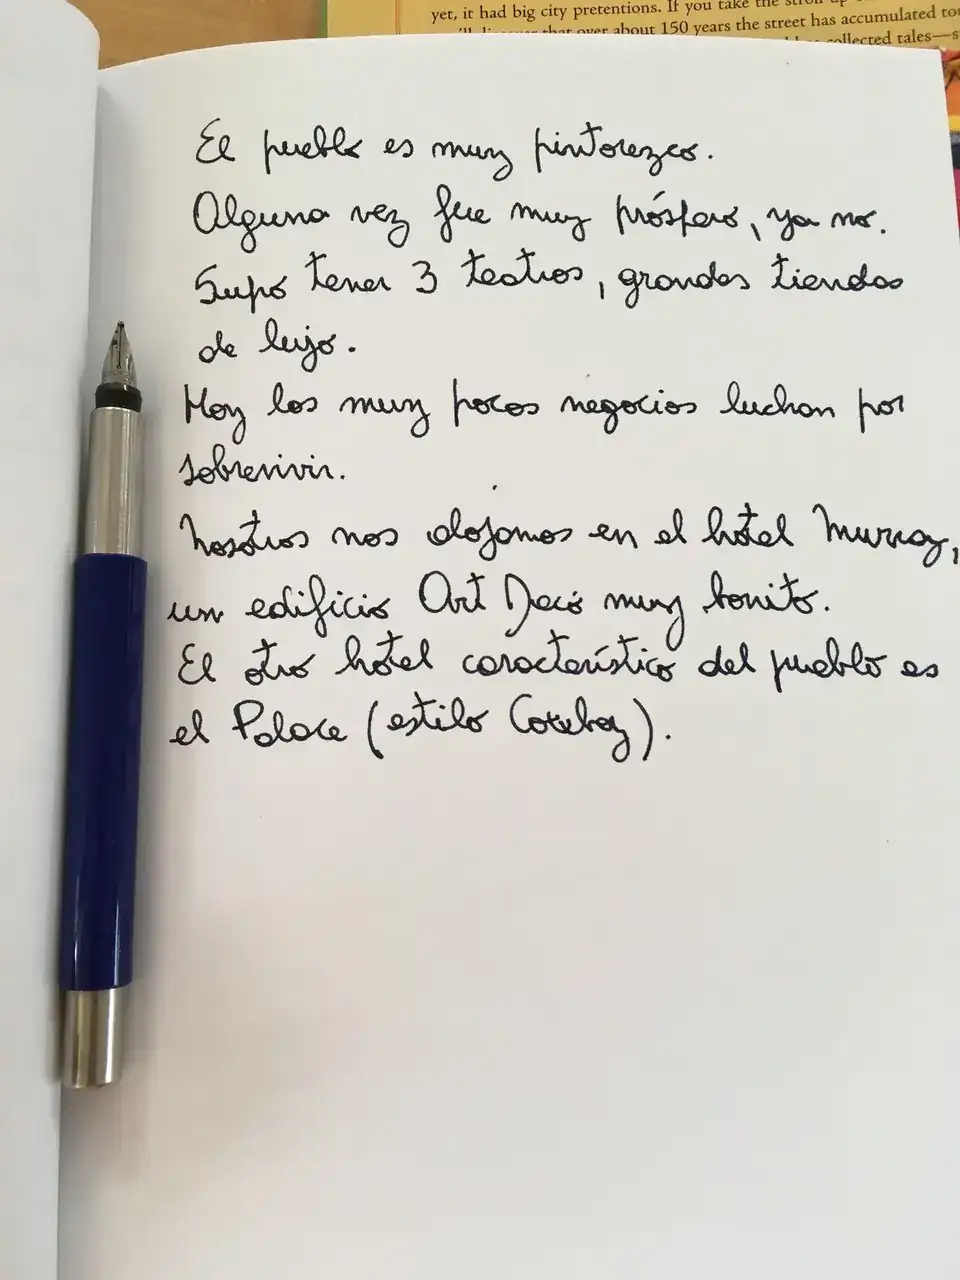 yet, it had big city pretentions. If you take the stroll up
that over about 150 years the street has accumulated
collected tales—
El pueblo es muy pintorezco.
Alguna vez fue muy próspero, ya no.
Supo tener 3 teatros, grandes tiendas
de lujo.
Hoy los muy pocos negocios luchan por
sobrevivir.
Nosotros nos alojamos en el hotel Murray,
un edificio Art Decó muy bonito.
El otro hotel característico del pueblo es
el Palace (estilo Cowboy).